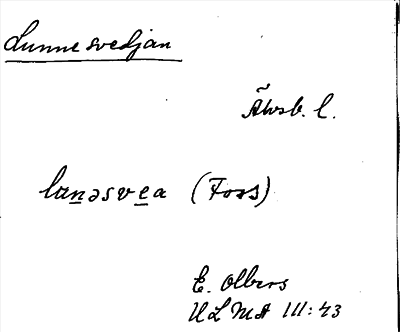 Lunnesvedjan
Älvsb. l.
lanəsvea (Foss)
E. Olbers
ULMA III:43